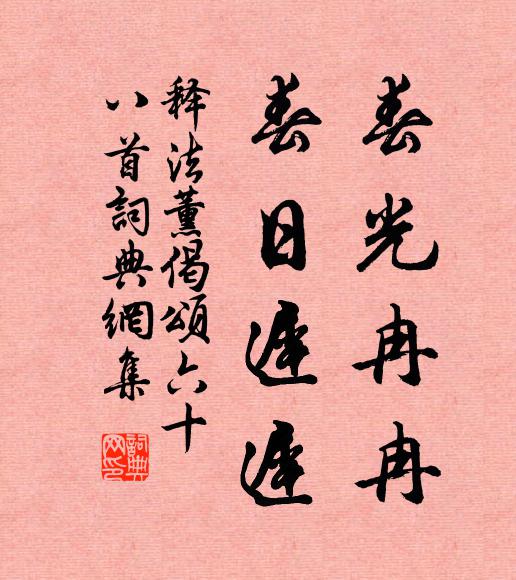 春光冉冉
春日遲遲
释法薰偈頌六十
八首詞典網集
詞典网印